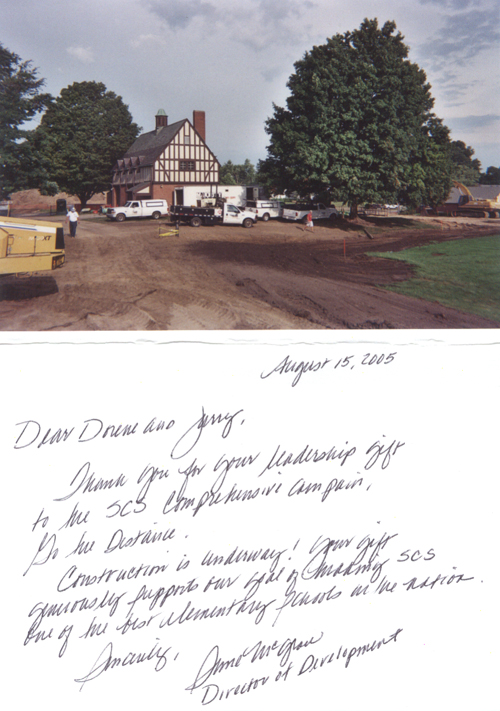 August 15, 2005
Dear Dorene and Jerry,
Thank you for your leadership gift
to the SCS Comprehensive Campain,
Go the Distance.
Construction is underway! Your gift
generously supports our goal of making SCS
one of the best elementary schools in the nation.
Sincerely,
Anne McGraw
Director of Development